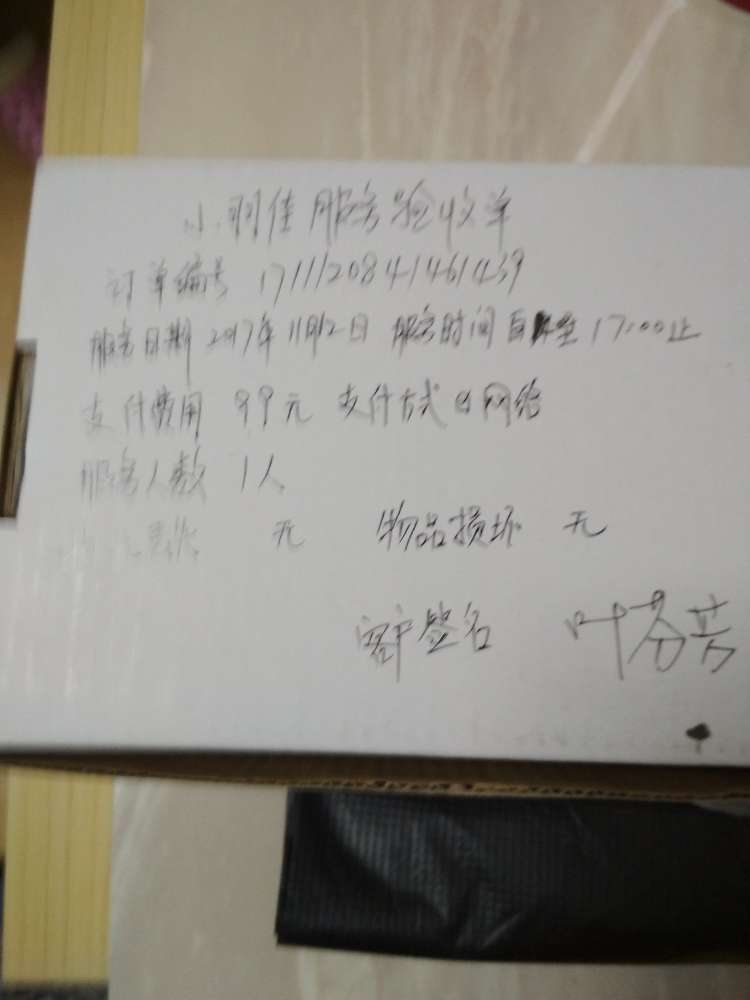 小羽佳服务验收单
订单编号 1711120841461439
服务日期 2017年11月12日 服务时间 自 至 17:00止
支付费用 99元 支付方式 网络
服务人数 1人
无 物品损坏 无
客户签名 叶芬芳